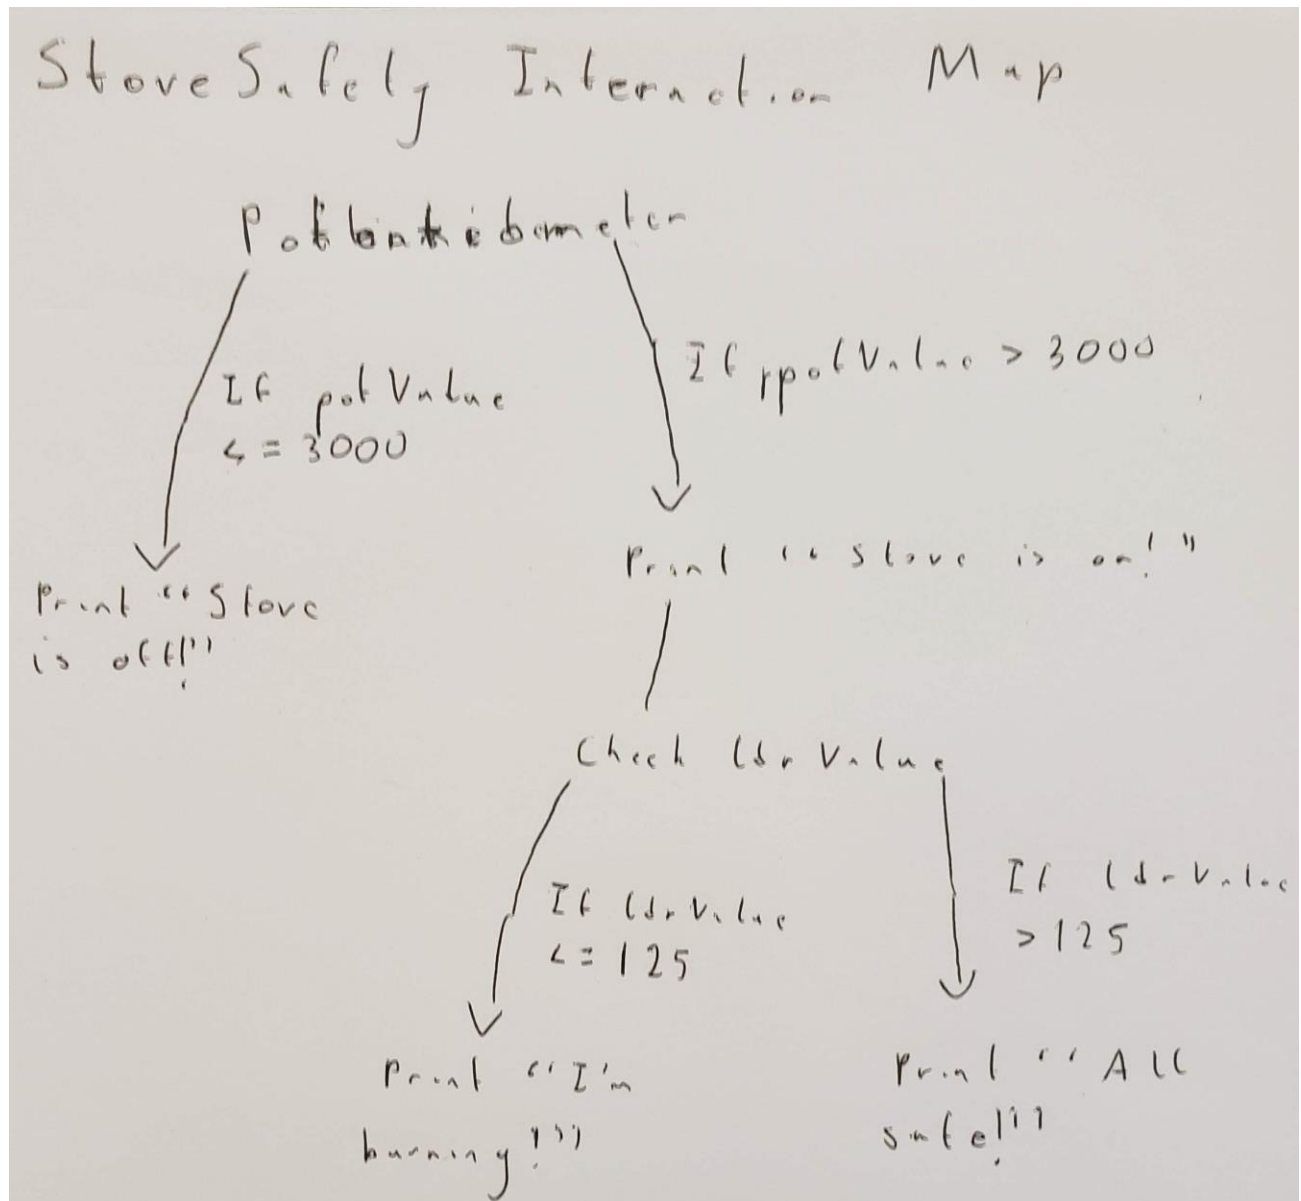 Stove Safety Interaction Map
Potentiometer
If potValue
<= 3000
If potValue > 3000
Print "Stove
is off!"
Print "Stove is on!"
Check ldrValue
If ldrValue
<= 125
If ldrValue
> 125
Print "I'm
burning!"
Print "All
safe!"